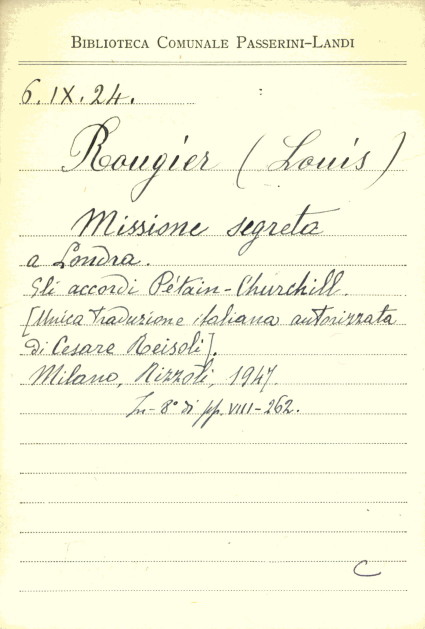 BIBLIOTECA COMUNALE PASSERINI-LANDI
6.IX.24.
Rougier (Louis)
Missione segreta
a Londra.
Gli accordi Pétain-Churchill.
[Unica traduzione italiana autorizzata
di Cesare Reisoli].
Milano, Rizzoli, 1947.
In-8° di pp. VIII-262.
C